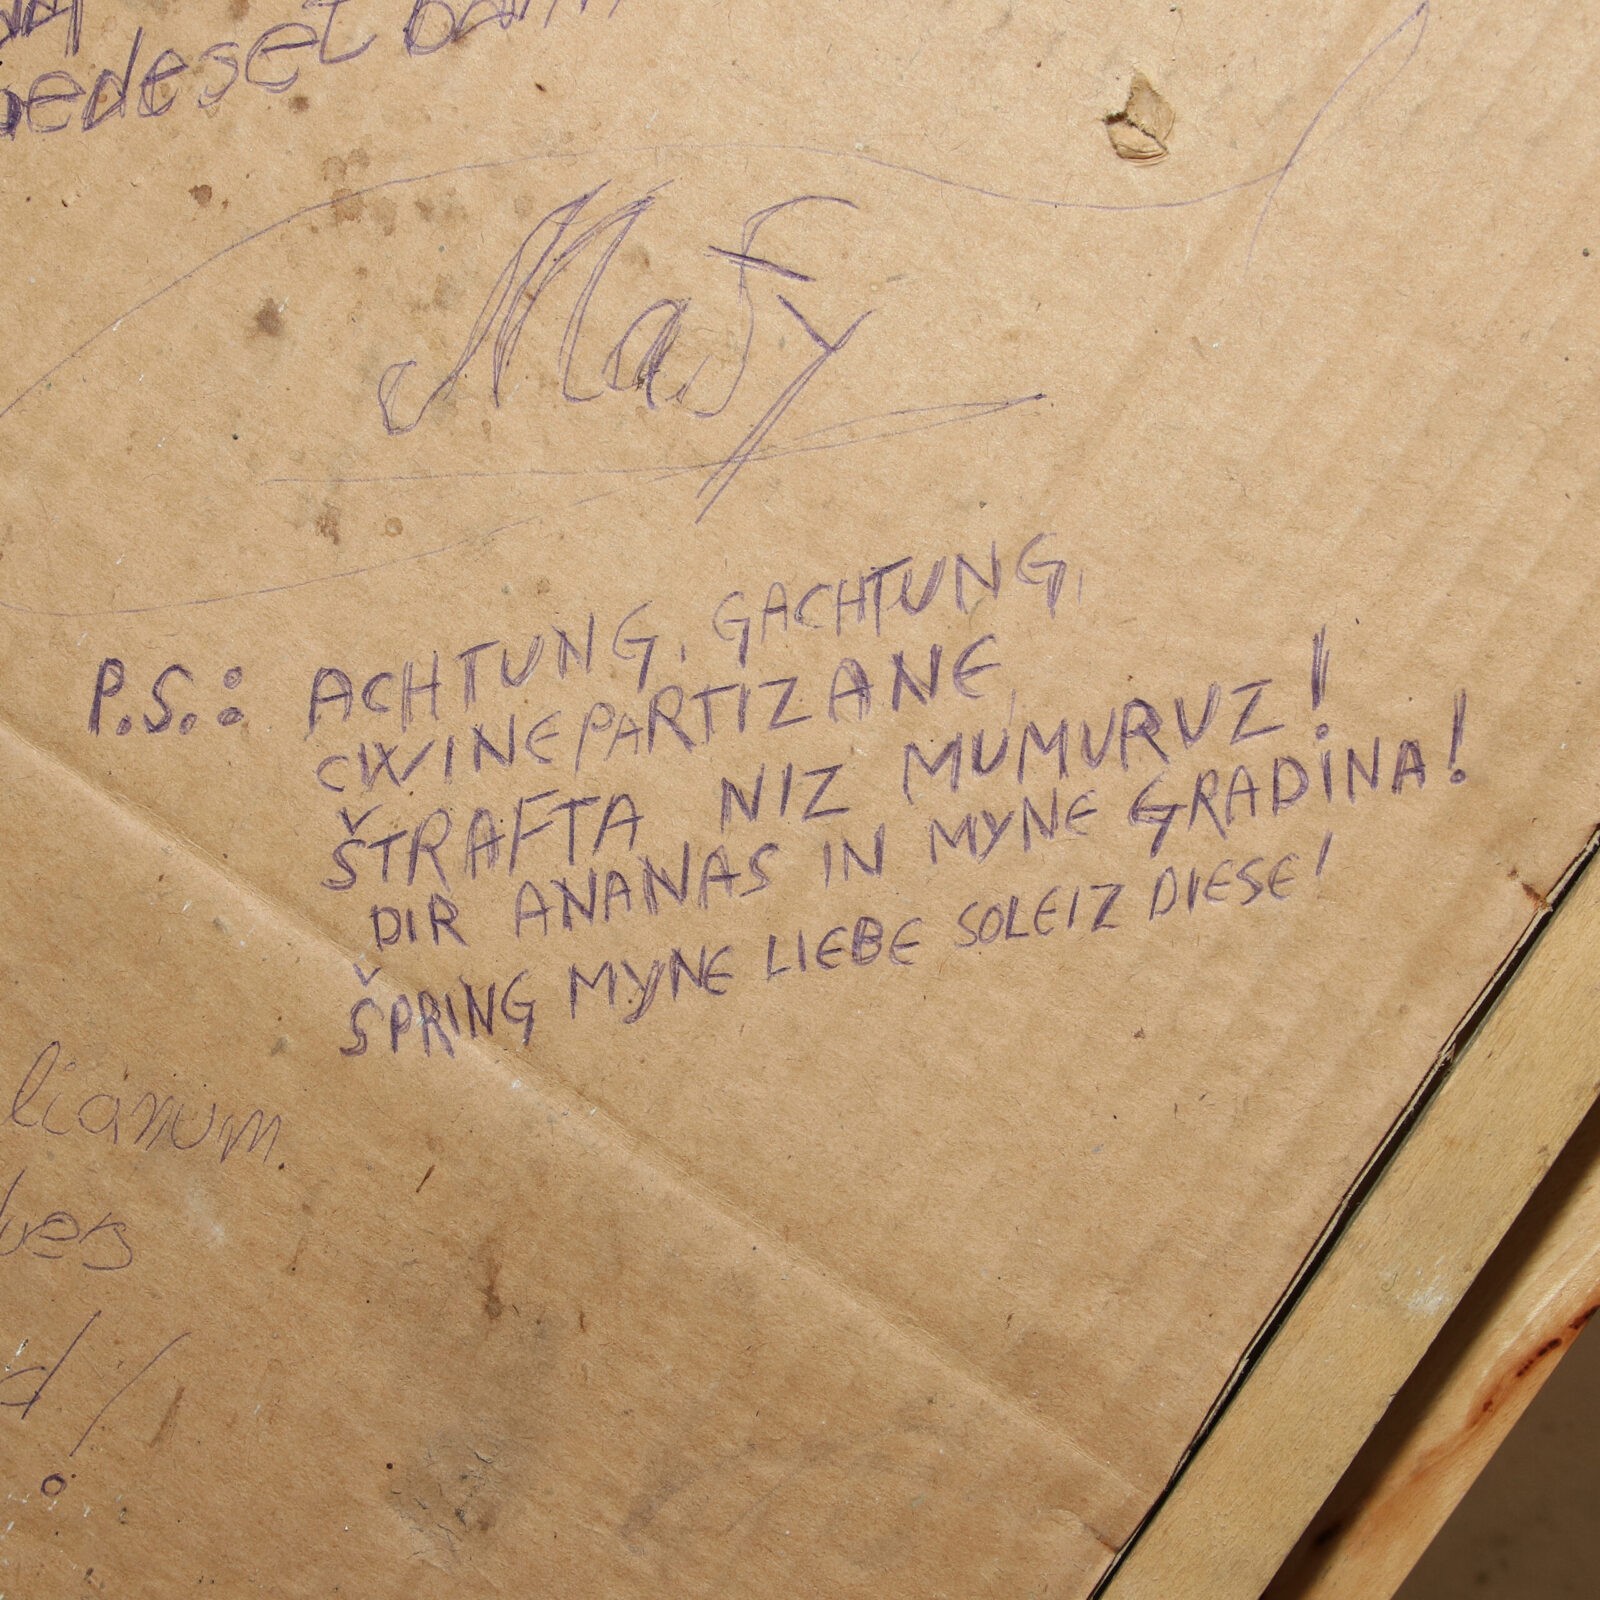 Mafy
P.S.: ACHTUNG, GACHTUNG,
CWINEPARTIZANE,
ŠTRAFTA NIZ MUMURUZ!
DIR ANANAS IN MYNE GRADINA!
ŠPRING MYNE LIEBE SOLEIZ DIESE!
lianum.